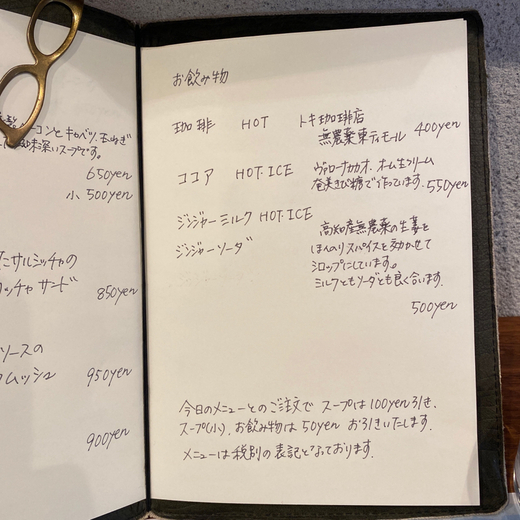 ーコンとキャベツ、玉ねぎ
味深いスープです。
650yen
小 500yen
サルシッチャの
ッチャ サンド 850yen
ソースの
ムッシュ 950yen
900yen
お飲み物
珈琲 HOT トキ珈琲店
無農薬東ティモール 400yen
ココア HOT・ICE ヴァローナカカオ、ホム生クリーム
奄美きび糖で作っています。550yen
ジンジャーミルク HOT・ICE
ジンジャーソーダ
高知産無農薬の生姜を
ほんのりスパイスを効かせて
シロップにしています。
ミルクともソーダとも良く合います。
500yen
今日のメニューとのご注文で スープは100yen引き、
スープ(小)、お飲み物は50yen お引きいたします。
メニューは税別の表記となっております。